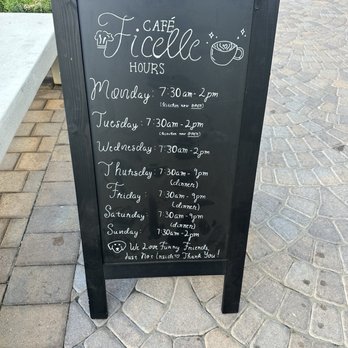 CAFÉ
Ficelle
HOURS
Monday: 7:30am-2pm
(Kitchen now OPEN)
Tuesday: 7:30am-2pm
(Kitchen now OPEN)
Wednesday: 7:30am-2pm
Thursday: 7:30am-9pm
(dinner)
Friday: 7:30am-9pm
(dinner)
Saturday: 7:30am-9pm
(dinner)
Sunday: 7:30am-2pm
We Love Furry Friends
Just Not Inside Thank You!